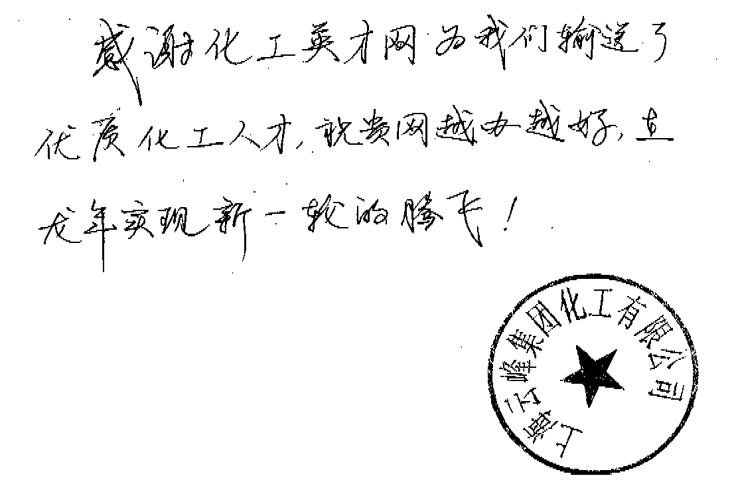 感谢化工英才网为我们输送了
优质化工人才,祝贵网越办越好,在
龙年实现新一轮的腾飞!
上海云峰集团化工有限公司